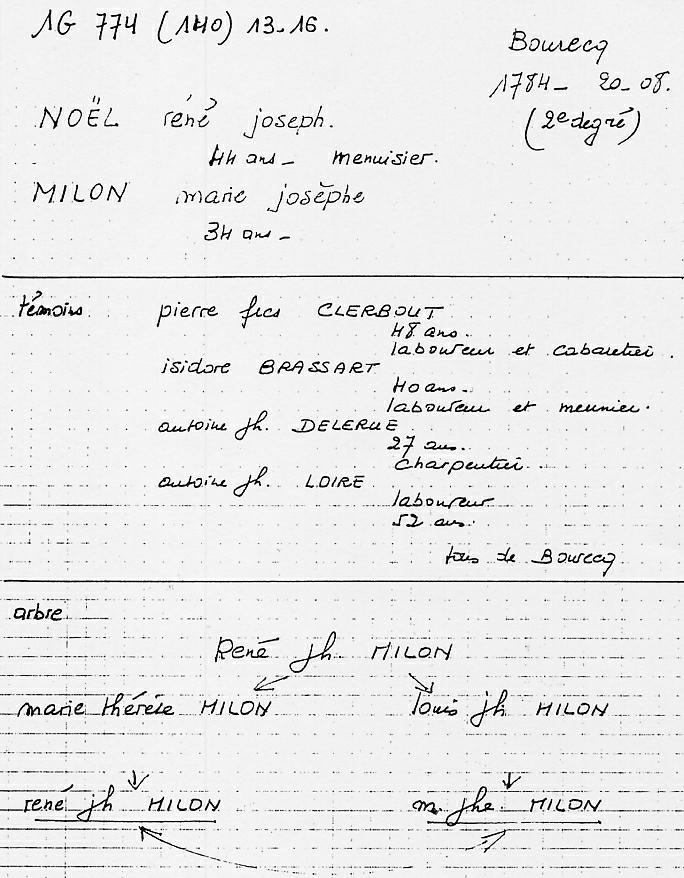 1G 774 (140) 13-16.
Bourecq
1784- 20-08.
(2e degré)
NOËL rené joseph.
44 ans - menuisier.
MILON marie josèphe
34 ans -
témoins pierre fcs CLERBOUT
48 ans.
laboureur et cabaretier.
isidore BRASSART
40 ans.
laboureur et meunier.
antoine jh. DELERUE
27 ans.
charpentier
antoine jh. LOIRE
laboureur
52 ans.
tous de Bourecq
arbre
René jh. MILON
marie thérèse MILON louis jh MILON
rené jh MILON m. jhe. MILON